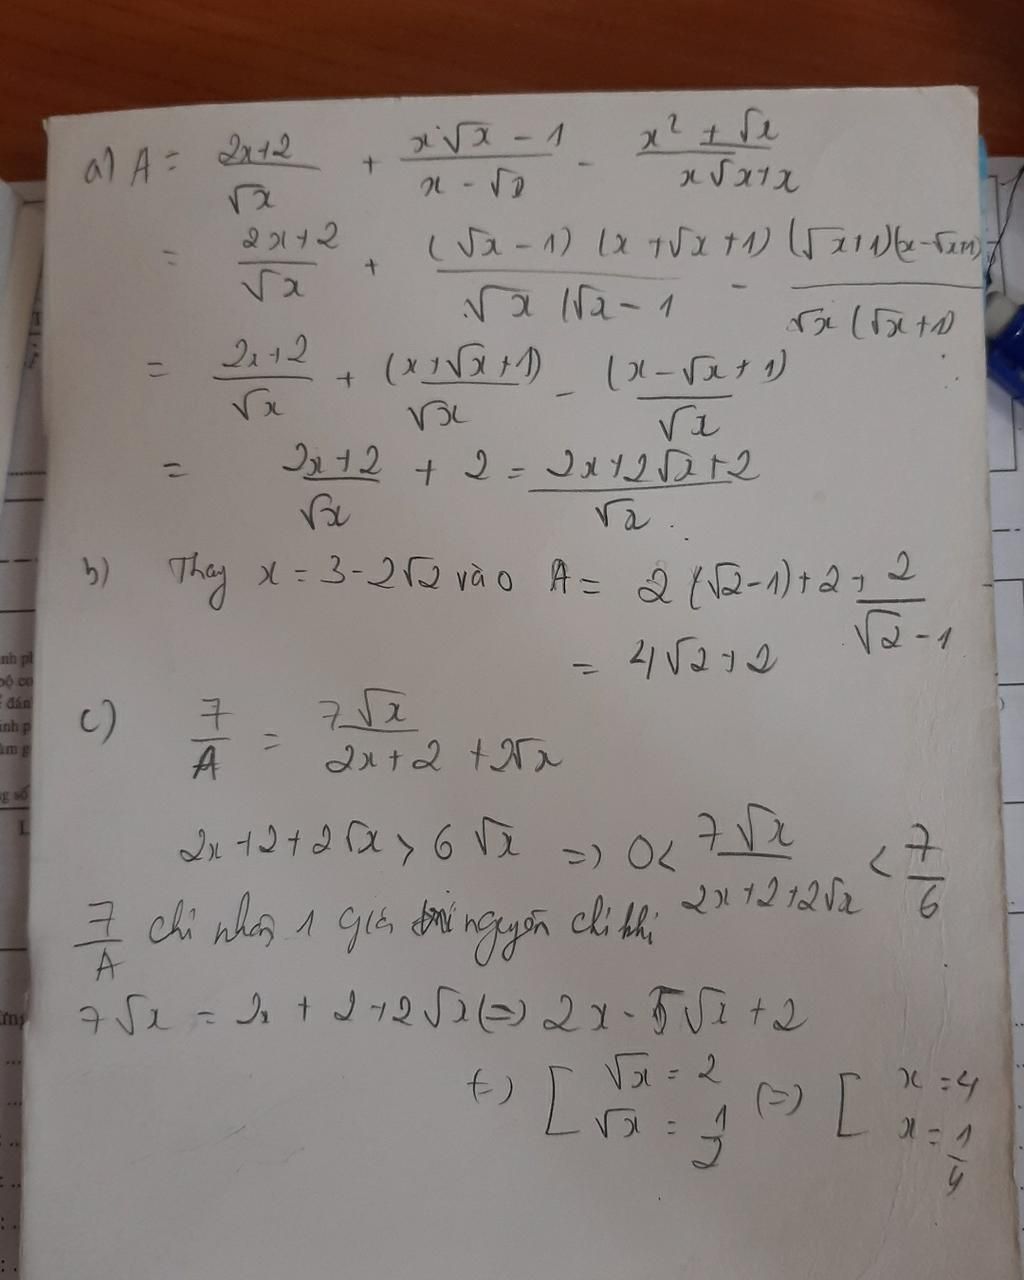 a) A = \frac{2x+2}{\sqrt{x}} + \frac{x\sqrt{x} - 1}{x - \sqrt{x}} - \frac{x^2 + \sqrt{x}}{x\sqrt{x}+x}
= \frac{2x+2}{\sqrt{x}} + \frac{(\sqrt{x} - 1)(x+\sqrt{x}+1)}{\sqrt{x}(\sqrt{x}-1} - \frac{(\sqrt{x}+1)(x-\sqrt{x}+1)}{\sqrt{x}(\sqrt{x}+1)}
= \frac{2x+2}{\sqrt{x}} + \frac{(x+\sqrt{x}+1)}{\sqrt{x}} - \frac{(x-\sqrt{x}+1)}{\sqrt{x}}
= \frac{2x+2}{\sqrt{x}} + 2 = \frac{2x+2\sqrt{x}+2}{\sqrt{x}}.
b) Thay x = 3-2\sqrt{2} vào A = 2(\sqrt{2}-1)+2+\frac{2}{\sqrt{2}-1}
= 4\sqrt{2}+2
c) \frac{7}{A} = \frac{7\sqrt{x}}{2x+2+2\sqrt{x}}
2x+2+2\sqrt{x} > 6\sqrt{x} => 0 < \frac{7\sqrt{x}}{2x+2+2\sqrt{x}} < \frac{7}{6}
\frac{7}{A} chỉ nhận 1 giá trị nguyên chỉ khi
7\sqrt{x} = 2x + 2+2\sqrt{x} (=) 2x - 5\sqrt{x} + 2
(=) [ \sqrt{x} = 2 (=) [ x = 4
\sqrt{x} = \frac{1}{2} x = \frac{1}{4}